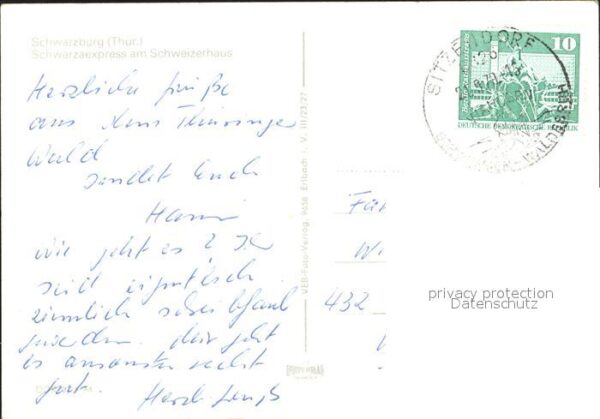 Schwarzburg (Thür.)
Schwarzaexpress am Schweizerhaus
Herzliche Grüße
aus dem Thüringer
Wald
sendet Euch
Hanni
wie geht es? Ihr
seid eigentlich
ziemlich schreibfaul
geworden. Mir geht
es ansonsten recht
gut.
Herzl. Gruß
VEB Foto-Verlag, 9658 Erlbach i. V. III/23/27
SITZENDORF
10
DEUTSCHE DEMOKRATISCHE REPUBLIK
432
privacy protection
Datenschutz